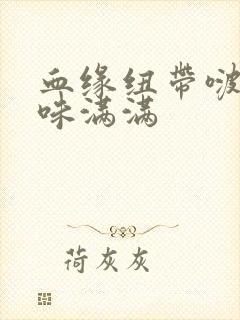 血缘纽带啵
味满满
荷灰灰